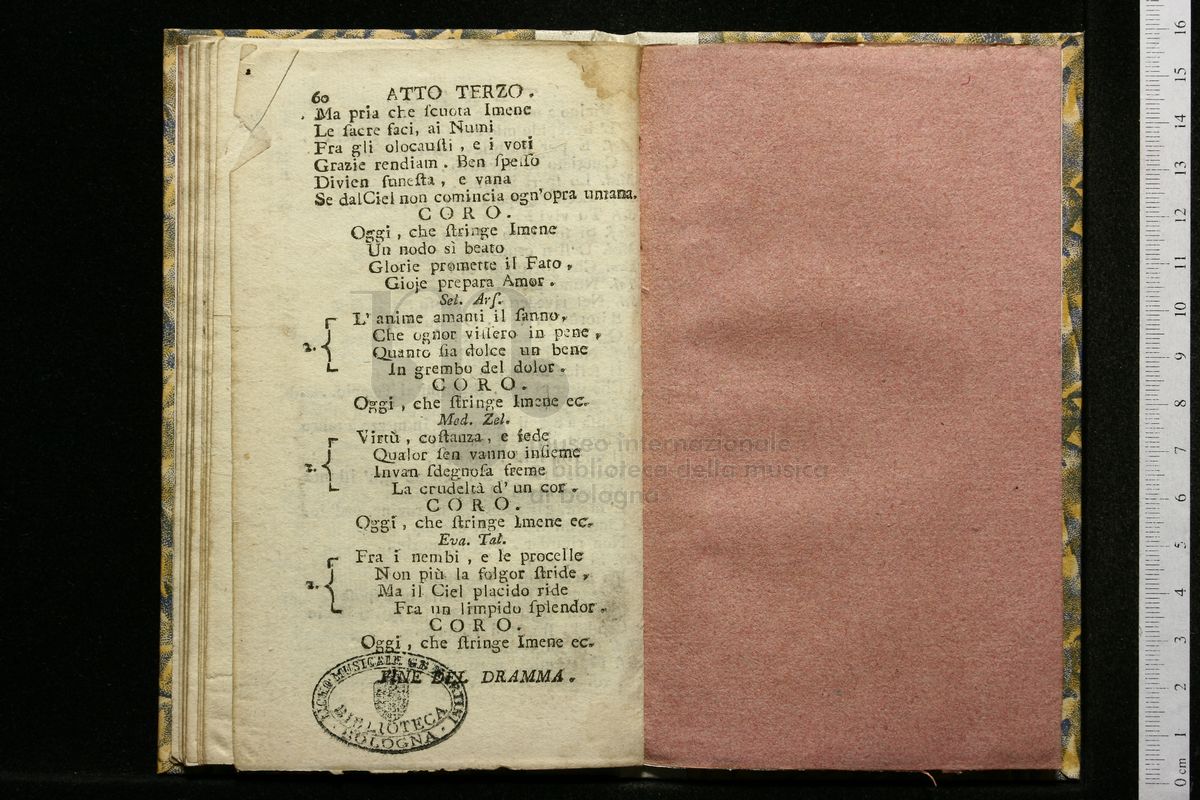 60 ATTO TERZO.
Ma pria che ſcuota Imene
Le ſacre faci, ai Numi
Fra gli olocauſti, e i voti
Grazie rendiam. Ben ſpeſſo
Divien funeſta, e vana
Se dal Ciel non comincia ogn'opra umana.
CORO.
Oggi, che ſtringe Imene
Un nodo sì beato
Glorie promette il Fato,
Gioje prepara Amor.
Sel. Arſ.
L'anime amanti il ſanno,
Che ognor viſſero in pene,
2.
Quanto ſia dolce un bene
In grembo del dolor.
CORO.
Oggi, che ſtringe Imene ec.
Med. Zel.
Virtù, coſtanza, e fede
Qualor ſen vanno inſieme
2.
Invan ſdegnoſa freme
La crudeltà d'un cor.
CORO.
Oggi, che ſtringe Imene ec.
Eva. Tal.
Fra i nembi, e le procelle
Non più la folgor ſtride,
2.
Ma il Ciel placido ride
Fra un limpido ſplendor.
CORO.
Oggi, che ſtringe Imene ec.
FINE DEL DRAMMA.
LICEO MUSICALE G.B. MARTINI
BIBLIOTECA
BOLOGNA
museo internazionale
e biblioteca della musica
di bologna
0 cm 1 2 3 4 5 6 7 8 9 10 11 12 13 14 15 16